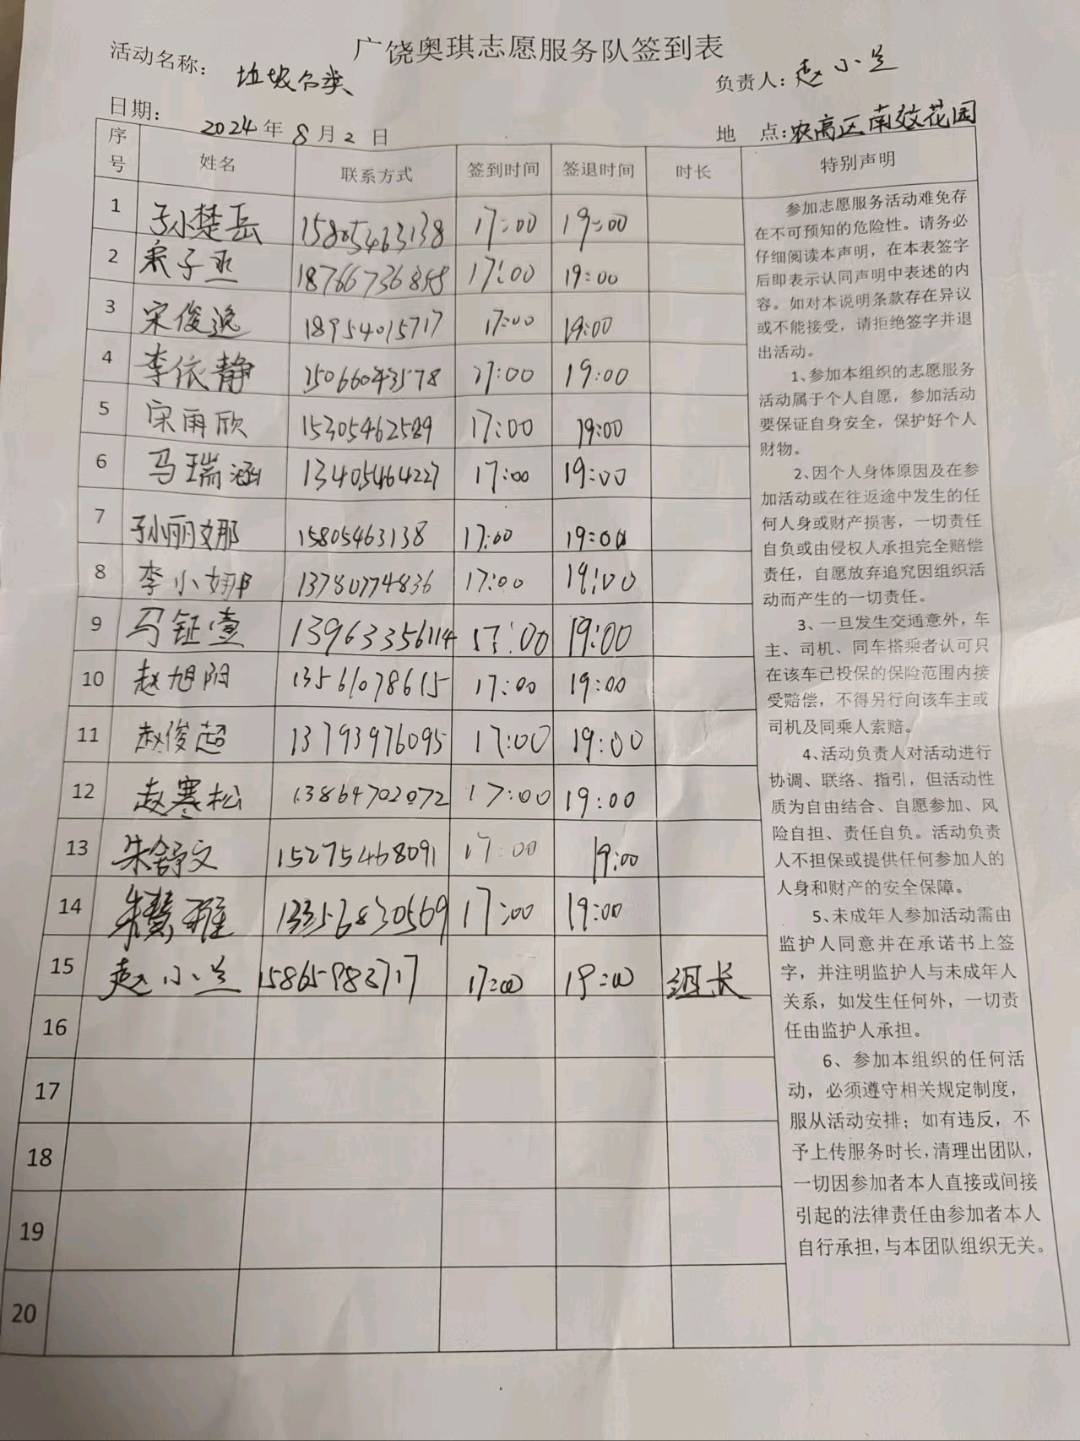 广饶奥琪志愿服务队签到表
活动名称: 垃圾分类
负责人: 赵小兰
日期: 2024年8月2日
地 点: 农高区南效花园
序号 姓名 联系方式 签到时间 签退时间 时长 特别声明
1 孙楚岳 15805463138 17:00 19:00
2 子 18766736858 17:00 19:00
3 宋俊逸 18954015717 17:00 19:00
4 李依静 15066043578 17:00 19:00
5 宋雨欣 15305462589 17:00 19:00
6 马瑞涵 13405464227 17:00 19:00
7 孙丽娜 15805463138 17:00 19:00
8 李小娜 13780774836 17:00 19:00
9 马钲壹 13963356114 17:00 19:00
10 赵旭阳 13561078615 17:00 19:00
11 赵俊超 13793976095 17:00 19:00
12 赵寒松 13864702072 17:00 19:00
13 朱舒文 15275468091 17:00 19:00
14 朱慧雅 13356830569 17:00 19:00
15 赵小兰 15865983717 17:00 19:00 组长
16
17
18
19
20
参加志愿服务活动难免存
在不可预知的危险性。请务必
仔细阅读本声明，在本表签字
后即表示认同声明中表述的内
容。如对本说明条款存在异议
或不能接受，请拒绝签字并退
出活动。
1、参加本组织的志愿服务
活动属于个人自愿，参加活动
要保证自身安全，保护好个人
财物。
2、因个人身体原因及在参
加活动或在往返途中发生的任
何人身或财产损害，一切责任
自负或由侵权人承担完全赔偿
责任，自愿放弃追究因组织活
动而产生的一切责任。
3、一旦发生交通意外，车
主、司机、同车搭乘者认可只
在该车已投保的保险范围内接
受赔偿，不得另行向该车主或
司机及同乘人索赔。
4、活动负责人对活动进行
协调、联络、指引，但活动性
质为自由结合、自愿参加、风
险自担、责任自负。活动负责
人不担保或提供任何参加人的
人身和财产的安全保障。
5、未成年人参加活动需由
监护人同意并在承诺书上签
字，并注明监护人与未成年人
关系，如发生任何外，一切责
任由监护人承担。
6、参加本组织的任何活
动，必须遵守相关规定制度，
服从活动安排；如有违反，不
予上传服务时长，清理出团队，
一切因参加者本人直接或间接
引起的法律责任由参加者本人
自行承担，与本团队组织无关。